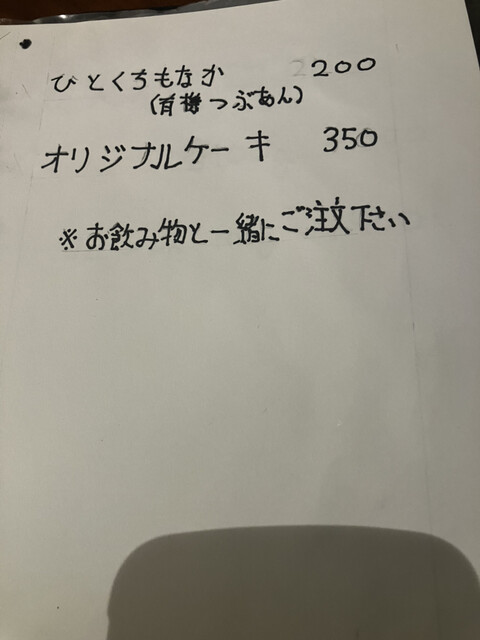 ひとくちもなか 200
(有機つぶあん)
オリジナルケーキ 350
※お飲み物と一緒にご注文下さい